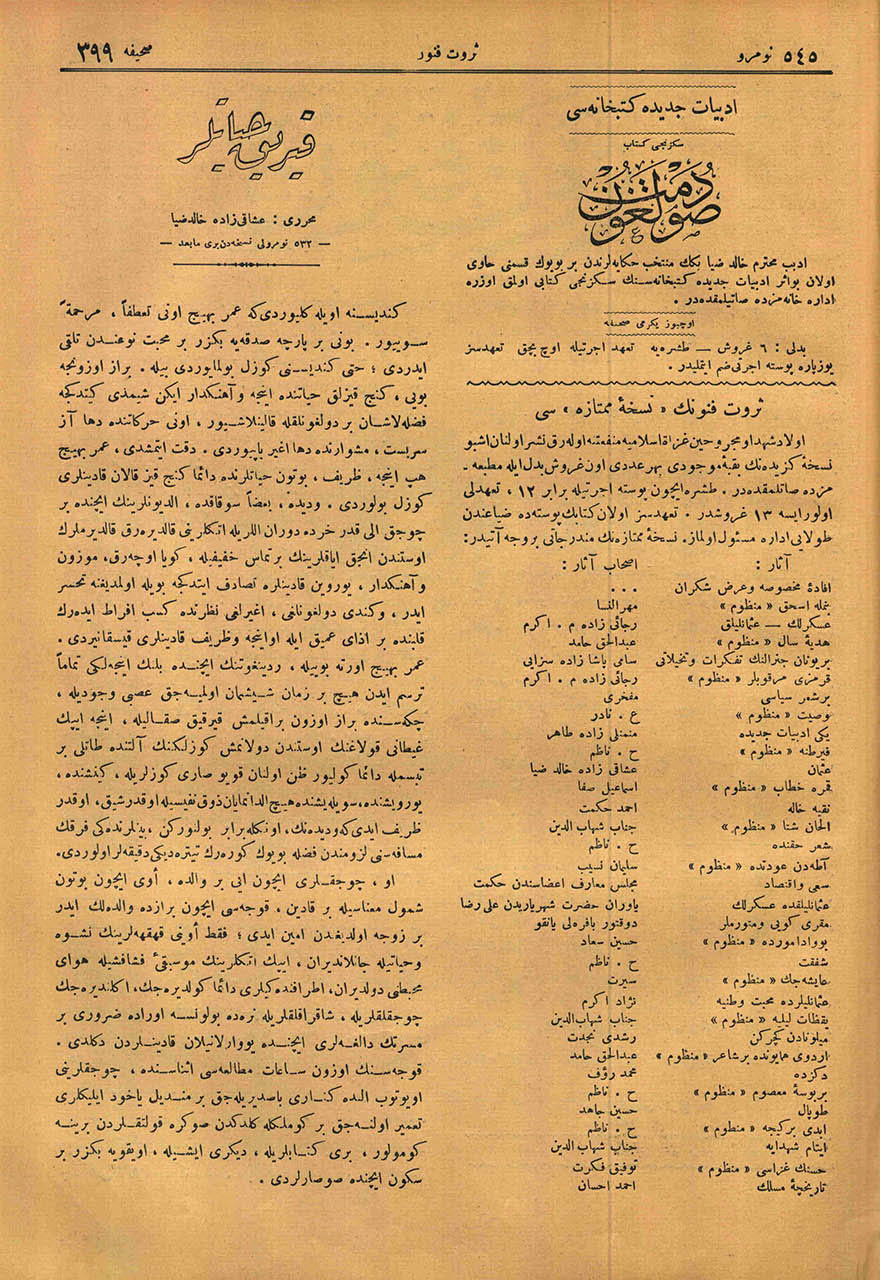 نومرو ٥٤٥
ثروت فنون
صحیفه ٣٩٩
ادبیات جدیده کتبخانه‌سی
سکزنجی کتاب
صولغون دمت
ادیب محترم خالد ضیا بكك منتخب حکایه‌لرندن بر بویوك قسمنی حاوی
اولان بواثر ادبیات جدیده کتبخانه‌سنك سکزنجی کتابی اولمق اوزره
اداره خانه مزده صاتیلمقده‌در .
اوچیوز یکرمی صحیفه
بدلی : ٦ غروش — طشره‌یه تعهد اجرتیله اوچ بچق تعهدسز
یوزپاره پوسته اجرتی ضم ایتملیدر .
ثروت فنونك « نسخۀ ممتازه » سی
اولاد شهدا و مجروحین غزاة اسلامیه منفعتنه اوله‌رق نشر اولنان اشبو
نسخۀ کزیده‌نك بقیۀ موجودی بهر عددی اون غروش بدل ایله مطبعه -
مزده صاتلمقده‌در . طشره ایچون پوسته اجرتیله برابر ١٢ ، تعهدلی
اولورایسه ١٣ غروشدر . تعهدسز اولان کتابك پوسته‌ده ضیاعندن
طولایی اداره مسئول اولماز. نسخۀ ممتازه‌نك مندرجاتی بروجه آتیدر:
آثار : اصحاب آثار :
افادۀ مخصوصه وعرض شکران . . .
بنله اسحق « منظوم » مهرالنسا
عسکرلك — عثمانلیلق رجائی زاده م . اکرم
هدیۀ سال « منظوم » عبدالحق حامد
بریونان جنرالنك تفکرات وتخیلاتی سامی پاشا زاده سزایی
قرمزی مرقوبلر « منظوم » رجائی زاده م . اکرم
برشعر سیاسی مفخری
وصیت « منظوم » ع . نادر
یکی ادبیات جدیده منمنلی زاده طاهر
فیرطنه « منظوم » ح . ناظم
عثمان عشاقی زاده خالد ضیا
قمره خطاب « منظوم » اسماعیل صفا
نقیه خاله احمد حکمت
الحان شتا « منظوم » جناب شهاب الدین
شعر حقنده ح . ناظم
آطه‌دن عودتده « منظوم » سلیمان نسیب
سعی واقتصاد مجلس معارف اعضاسندن حکمت
عثمانلیلقده عسکرلك یاوران حضرت شهریاریدن علی رضا
مقری کویی ومنورملر دوقتور بافره‌لی یانقو
بووادامورده « منظوم » حسین سعاد
شفقت ح . ناظم
عایشه‌جك « منظوم » سیرت
عثمانلیلرده محبت وطنیه نژاد اکرم
یقظات لیلیه « منظوم » جناب شهاب‌الدین
میلونادن کچرکن رشدی نجدت
اردوی همایونده برشاعر « منظوم » عبدالحق حامد
دکزده محمد رؤف
بربوسۀ معصوم « منظوم » ح . ناظم
طوپال حسین جاهد
ایدی برکیجه « منظوم » ح . ناظم
ایتام شهدایه جناب شهاب الدین
حسنك غزاسی « منظوم » توفیق فکرت
تاریخچۀ مسلك احمد احسان
قیریق حیاتلر
محرری : عشاقی‌زاده خالد ضیا
— ٥٣٢ نومرولی نسخه‌دن‌بری مابعد —
کندیسنه اویله کلیوردی‌که عمر بهیج اونی تعطفاً ، مرحمةً
سوییور . بونی بر پارچه صدقه‌یه بکزر بر محبت نوعندن تلقی
ایدردی ؛ حتی کندیسنی کوزل بولمایوردی بیله . براز اوزونجه
بویی ، کنج قیزلق حیاتنده اینجه وآهنکدار ایکن شیمدی کیتدکجه
فضله‌لاشان بر دولغونلقله قالینلاشیور ، اونی حرکاتنده دها آز
سربست ، مشوارنده دها اغیر یاپیوردی . دقت ایتمشدی ، عمر بهیج
هپ اینجه ، ظریف ، بوتون حیاتلرنده دائما کنج قیز قالان قادینلری
کوزل بولوردی . ودیده ، بعضاً سوقاقده ، الدیونلرینك ایچنده بر
چوجق الی قدر خرده دوران اللریله اتکلرینی قالدیره‌رق قالدیرملرك
اوستندن انجق ایاقلرینك برتماس خفیفیله ، کویا اوچه‌رق، موزون
وآهنکدار ، یورویین قادینلره تصادف ایتدکجه بویله اولمدیغنه تحسر
ایدر ، وکندی دولغونلغی ، اغیرلغی نظرنده کسب افراط ایده‌رك
قلبنده بر اذای عمیق ایله اواینجه وظریف قادینلری قیسقانیردی .
عمر بهیج اورته بوییله ، ردینغوتنك ایچنده بلنك اینجه‌لکی تماماً
ترسم ایدن هیچ بر زمان شیشمان اولمیه‌جق عصبی وجودیله ،
چکه‌سنده براز اوزون براقیلمش قیرقیق صقالیله ، اینجه ایپك
غیطانی قولاغنك اوستندن دولانمش کوزلکنك آلتنده طاتلی بر
تبسمله دائما کولیور ظن اولنان قویو صاری کوزلریله ، کینشنده ،
یورویشنده ، سویله‌یشنده هیچ الدانمایان ذوق نفیسیله اوقدرشیق، اوقدر
ظریف ایدی که ودیده‌نك، اونکله برابر بولنورکن ، بینلرنده‌کی فرقك
مسافه‌سنی لزومندن فضله بویوك کوره‌رك تیتره‌دیکی دقیقه‌لر اولوردی.
او ، چوجقلری ایچون ایی بر والده ، أوی ایچون بوتون
شمول معناسیله بر قادین ، قوجه‌سی ایچون برازده والده‌لك ایدر
بر زوجه اولدیغندن امین ایدی ؛ فقط أونی قهقهه‌لرینك نشوه
وحیاتیله جانلاندیران ، ایپك اتکلرینك موسیقئ فشافشیله هوای
محیطنی دولدیران، اطرافنده‌کیلری دائما کولدیره‌جك، اکلندیره‌جك
چوجقلقلریله ، شاقراقلقلریله نره‌ده بولونسه اوراده ضروری بر
مسرتك دالغه‌لری ایچنده یووارلانیلان قادینلردن دکلدی .
قوجه‌سنك اوزون ساعات مطالعه‌سی اثناسنده ، چوجقلرینی
اویوتوب النده کناری باصدیریله‌جق بر مندیل یاخود ایلیکلری
تعمیر اولنه‌جق بر کوملکله کلدکدن صوکره قولتقلردن برینه
کومولور ، بری کتابلریله ، دیکری ایشیله ، اویقویه بکزر بر
سکون ایچنده صوصارلردی .